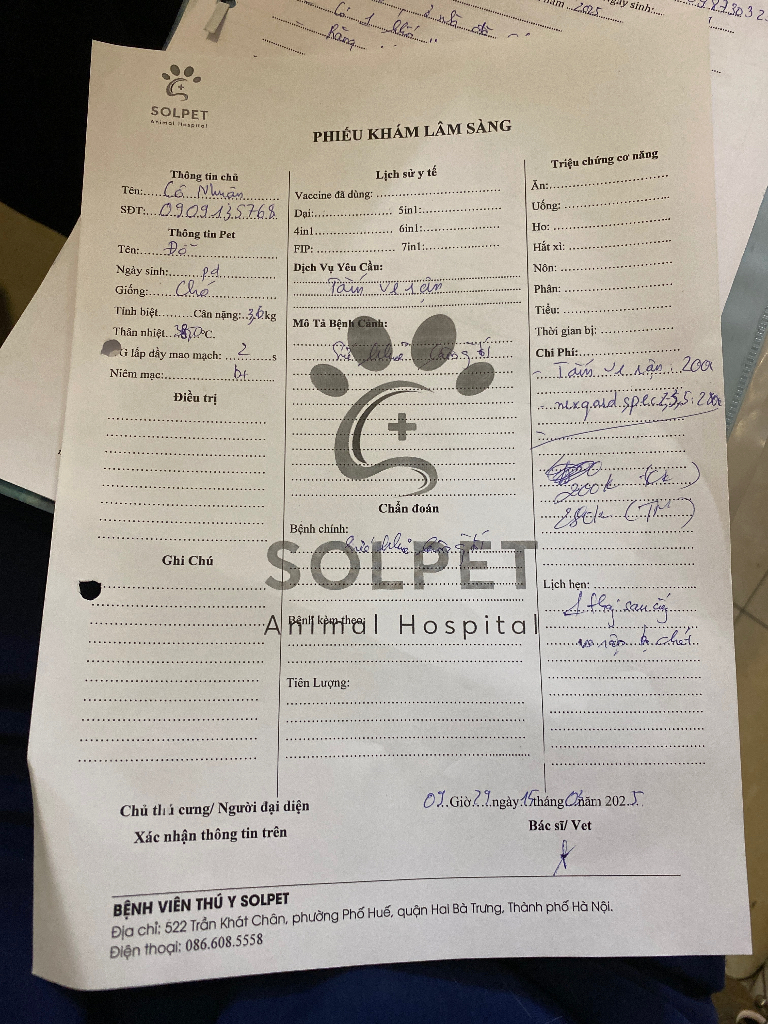 năm 2025
ngày sinh:
Có 1
Răng
SOLPET
Animal Hospital
PHIẾU KHÁM LÂM SÀNG
Thông tin chủ
Tên: Cô Nhuần
SĐT: 0909135768
Thông tin Pet
Tên: Đỗ
Ngày sinh: pd
Giống: Chó
Tính biệt Cân nặng: 3,6 kg
Thân nhiệt °C.
TG lấp đầy mao mạch: 2 s
Niêm mạc: bt
Điều trị
Ghi Chú
Lịch sử y tế
Vaccine đã dùng:
Dại: 5in1:
4in1 6in1:
FIP: 7in1:
Dịch Vụ Yêu Cầu:
Tắm ve rận
Mô Tả Bệnh Cảnh:
Sức khoẻ
Chẩn đoán
Bệnh chính:
Sức khoẻ
SOLPET
Animal Hospital
Bệnh kèm theo:
Tiên Lượng:
Triệu chứng cơ năng
Ăn:
Uống:
Ho:
Hắt xì:
Nôn:
Phân:
Tiểu:
Thời gian bị:
Chi Phí:
- Tắm ve rận: 200k
- nexgard spec 3,5: 280k
200k (CK)
280k (TM)
Lịch hẹn:
1
chết
09 Giờ 29 ngày 15 tháng 06 năm 2025
Chủ thú cưng/ Người đại diện
Xác nhận thông tin trên
Bác sĩ/ Vet
BỆNH VIÊN THÚ Y SOLPET
Địa chỉ: 522 Trần Khát Chân, phường Phố Huế, quận Hai Bà Trưng, Thành phố Hà Nội.
Điện thoại: 086.608.5558